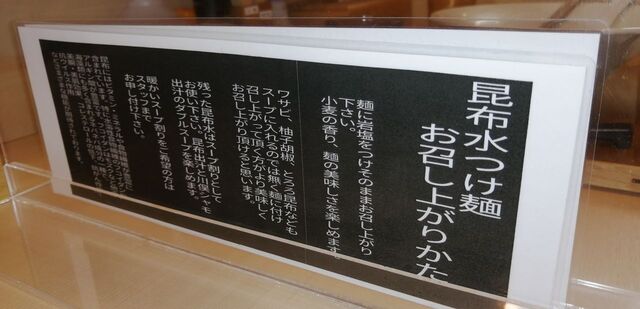 昆布水つけ麺
お召し上がりかた
麺に岩塩をつけそのままお召し上がり
下さい。
小麦の香り、麺の美味しさを楽しめます。
ワサビ、柚子胡椒、とろろ昆布なども
スープに入れるのでは無く麺に付け
召し上がって頂く方がより美味しく
お召し上がり頂けると思います。
残った昆布水はスープ割りとして
お使い下さい。昆布出汁と川俣シャモ
出汁のダブルスープを楽しめます。
暖かいスープ割りをご希望の方は
スタッフまで
お申し付け下さい。